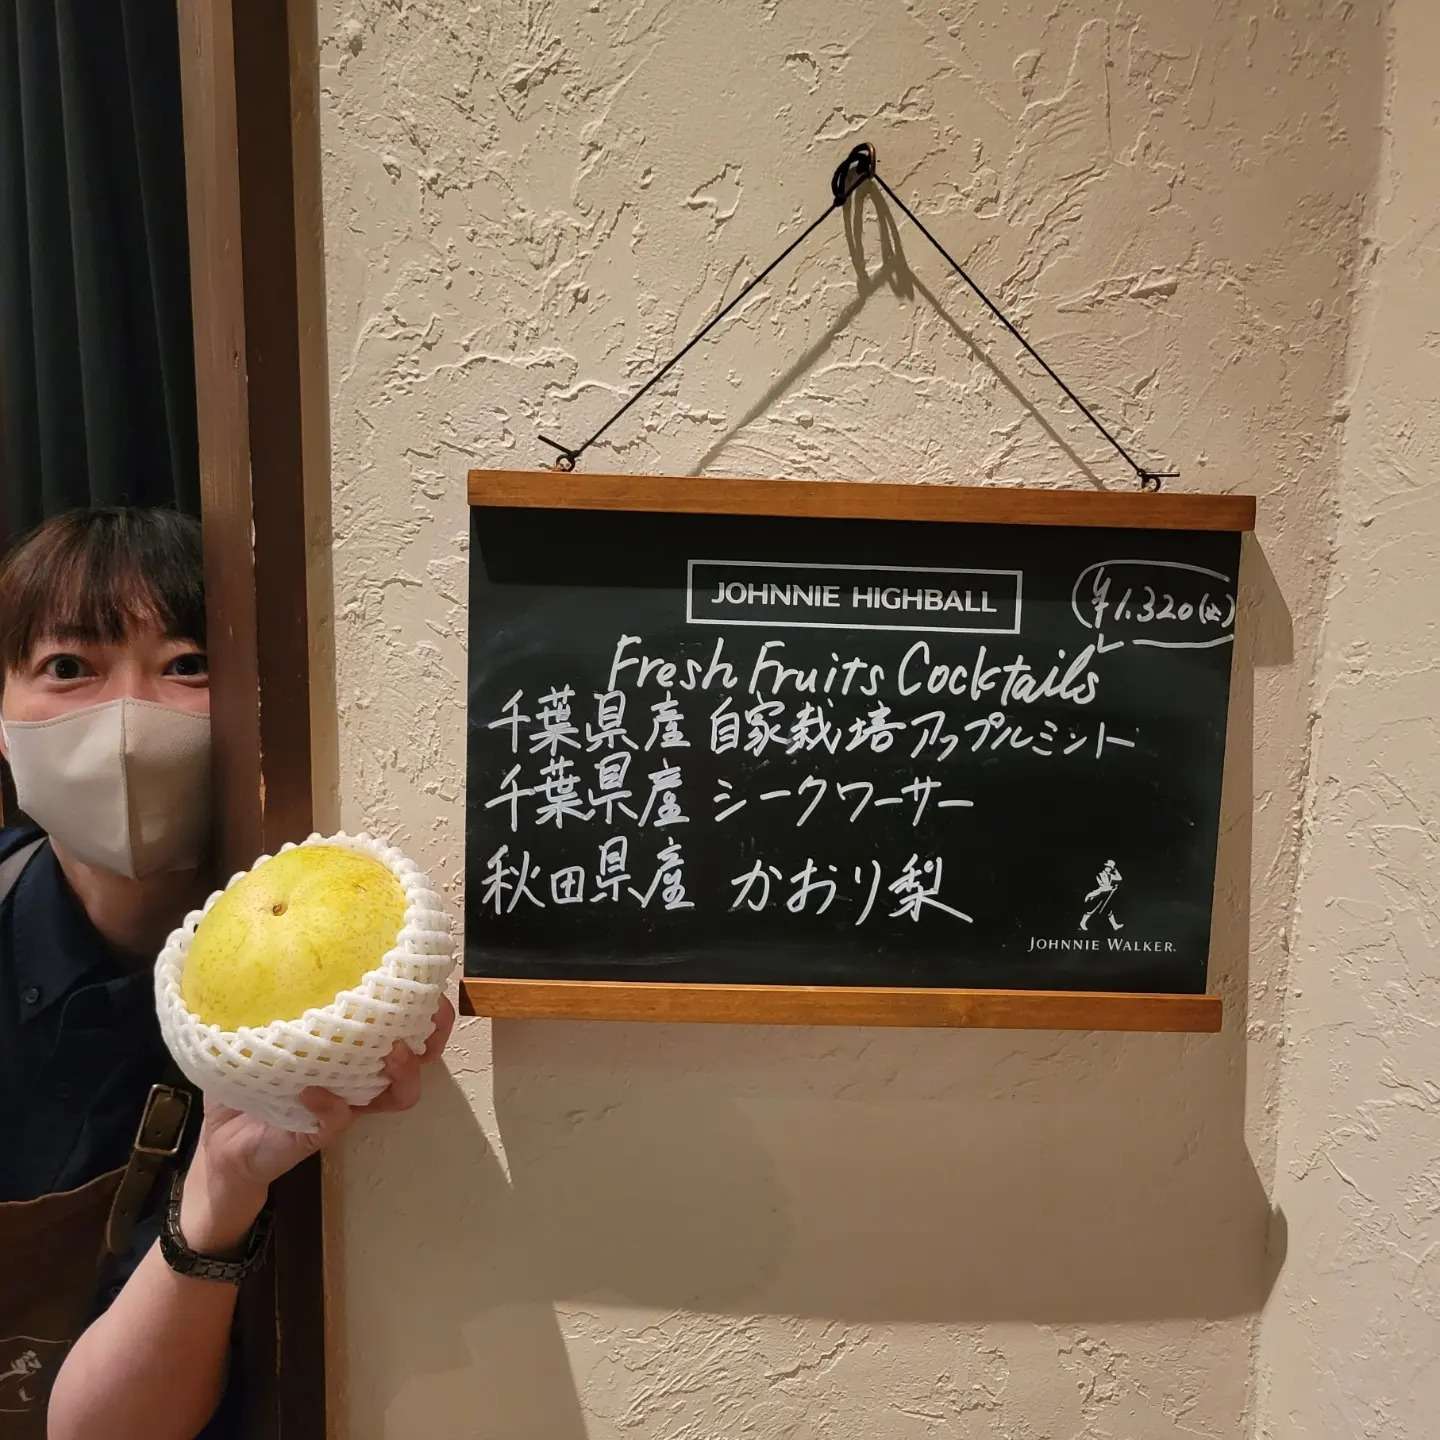 JOHNNIE HIGHBALL
¥1.320(込)
Fresh Fruits Cocktails
千葉県産 自家栽培アップルミント
千葉県産 シークワーサー
秋田県産 かおり梨
JOHNNIE WALKER.